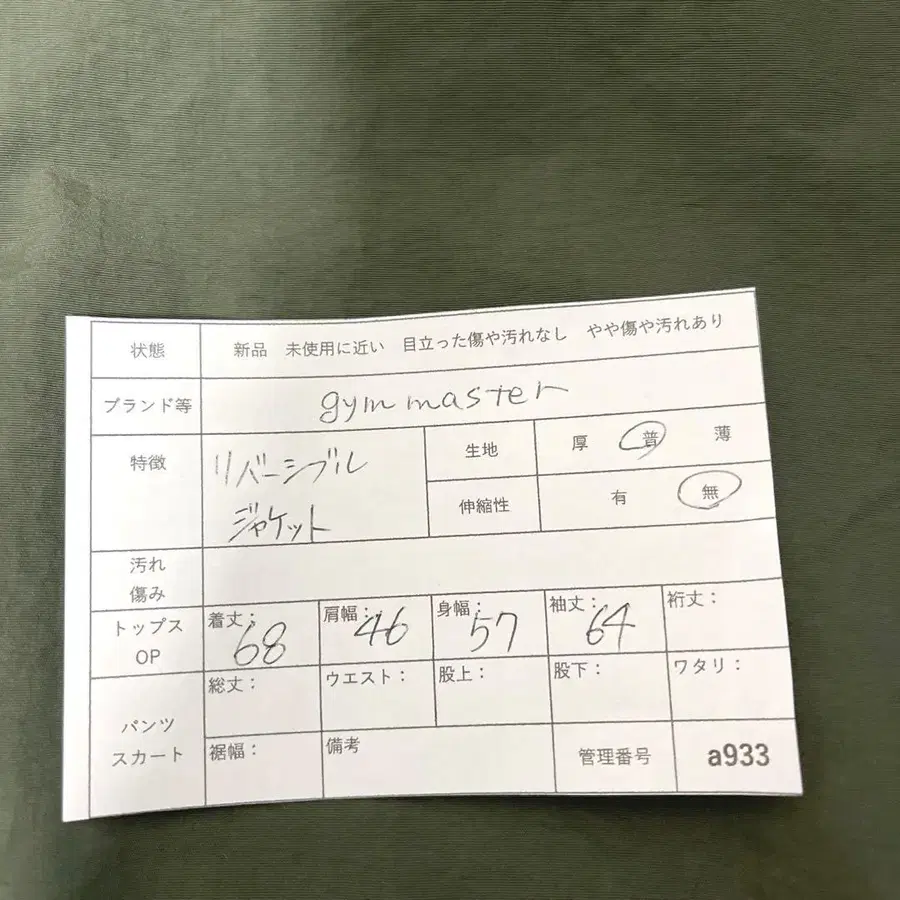 状態 新品 未使用に近い 目立った傷や汚れなし やや傷や汚れあり
ブランド等 gym master
特徴 リバーシブル
ジャケット
生地 厚 普 薄
伸縮性 有 無
汚れ
傷み
トップス
OP
着丈: 68 肩幅: 46 身幅: 57 袖丈: 64 裄丈:
パンツ
スカート
総丈: ウエスト: 股上: 股下: ワタリ:
裾幅: 備考 管理番号 a933